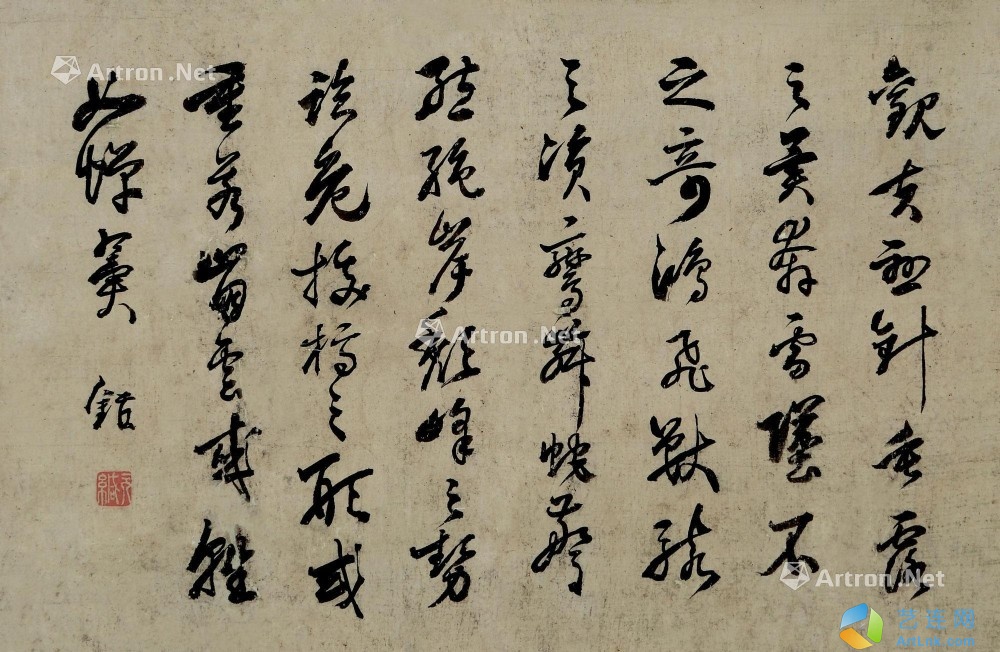 觀夫懸針垂露
之異奔雷墜石
之奇鴻飛獸駭
之資鸞舞蛇驚
態絕岸頹峰之勢
臨危據槁之形或
重若崩雲或輕
如蟬翼 錯
Artron.Net
Artron.Net
Artron.Net
Artron.Net
Artron.Net